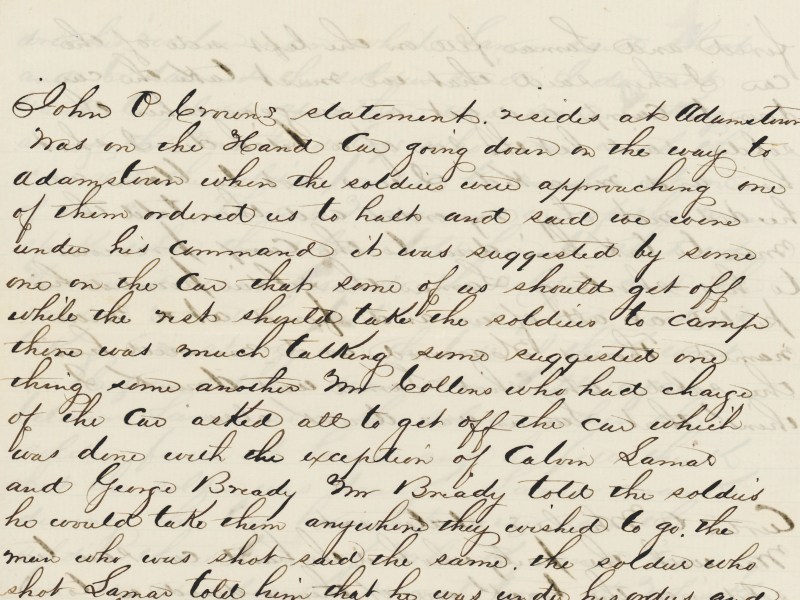 John O Crown's statement. resides at Adamstown
Was on the Hand Car going down on the way to
Adamstown when the soldiers were approaching one
of them ordered us to halt and said we were
under his command it was suggested by some
one on the Car that some of us should get off
while the rest should take the soldiers to camp
there was much talking some suggested one
thing some another Mr Collins who had charge
of the Car asked all to get off the car which
was done with the exception of Calvin Lamar
and George Bready Mr Bready told the soldiers
he would take them anywhere they wished to go. the
man who was shot said the same. the soldier who
shot Lamar told him that he was under his orders and